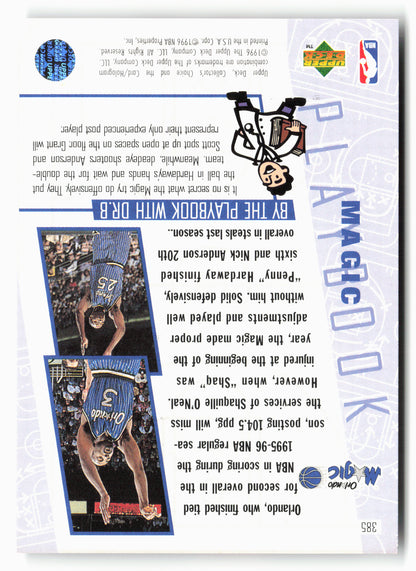 385
Orlando
MAGIC
MAGIC
PLAYBOOK
Orlando, who finished tied
for second overall in the
NBA in scoring during the
1995-96 NBA regular sea-
son, posting 104.5 ppg, will miss
the services of Shaquille O'Neal.
However, when "Shaq" was
injured at the beginning of the
year, the Magic made proper
adjustments and played well
without him. Solid defensively,
"Penny" Hardaway finished
sixth and Nick Anderson 20th
overall in steals last season..
Orlando
3
25
BY THE PLAYBOOK WITH DR.B
It is no secret what the Magic try do offensively. They put
the ball in Hardaway's hands and wait for the double-
team. Meanwhile, deadeye shooters Anderson and
Scott spot up at open spaces on the floor. Grant will
represent their only experienced post player.
NBA
UPPER
DECK
TM
Upper Deck, Collector's Choice and the Card/Hologram
combination are trademarks of The Upper Deck Company, LLC.
©1996 The Upper Deck Company, LLC. All Rights Reserved.
Printed in the U.S.A. Copy. ©1996 NBA Properties, Inc.